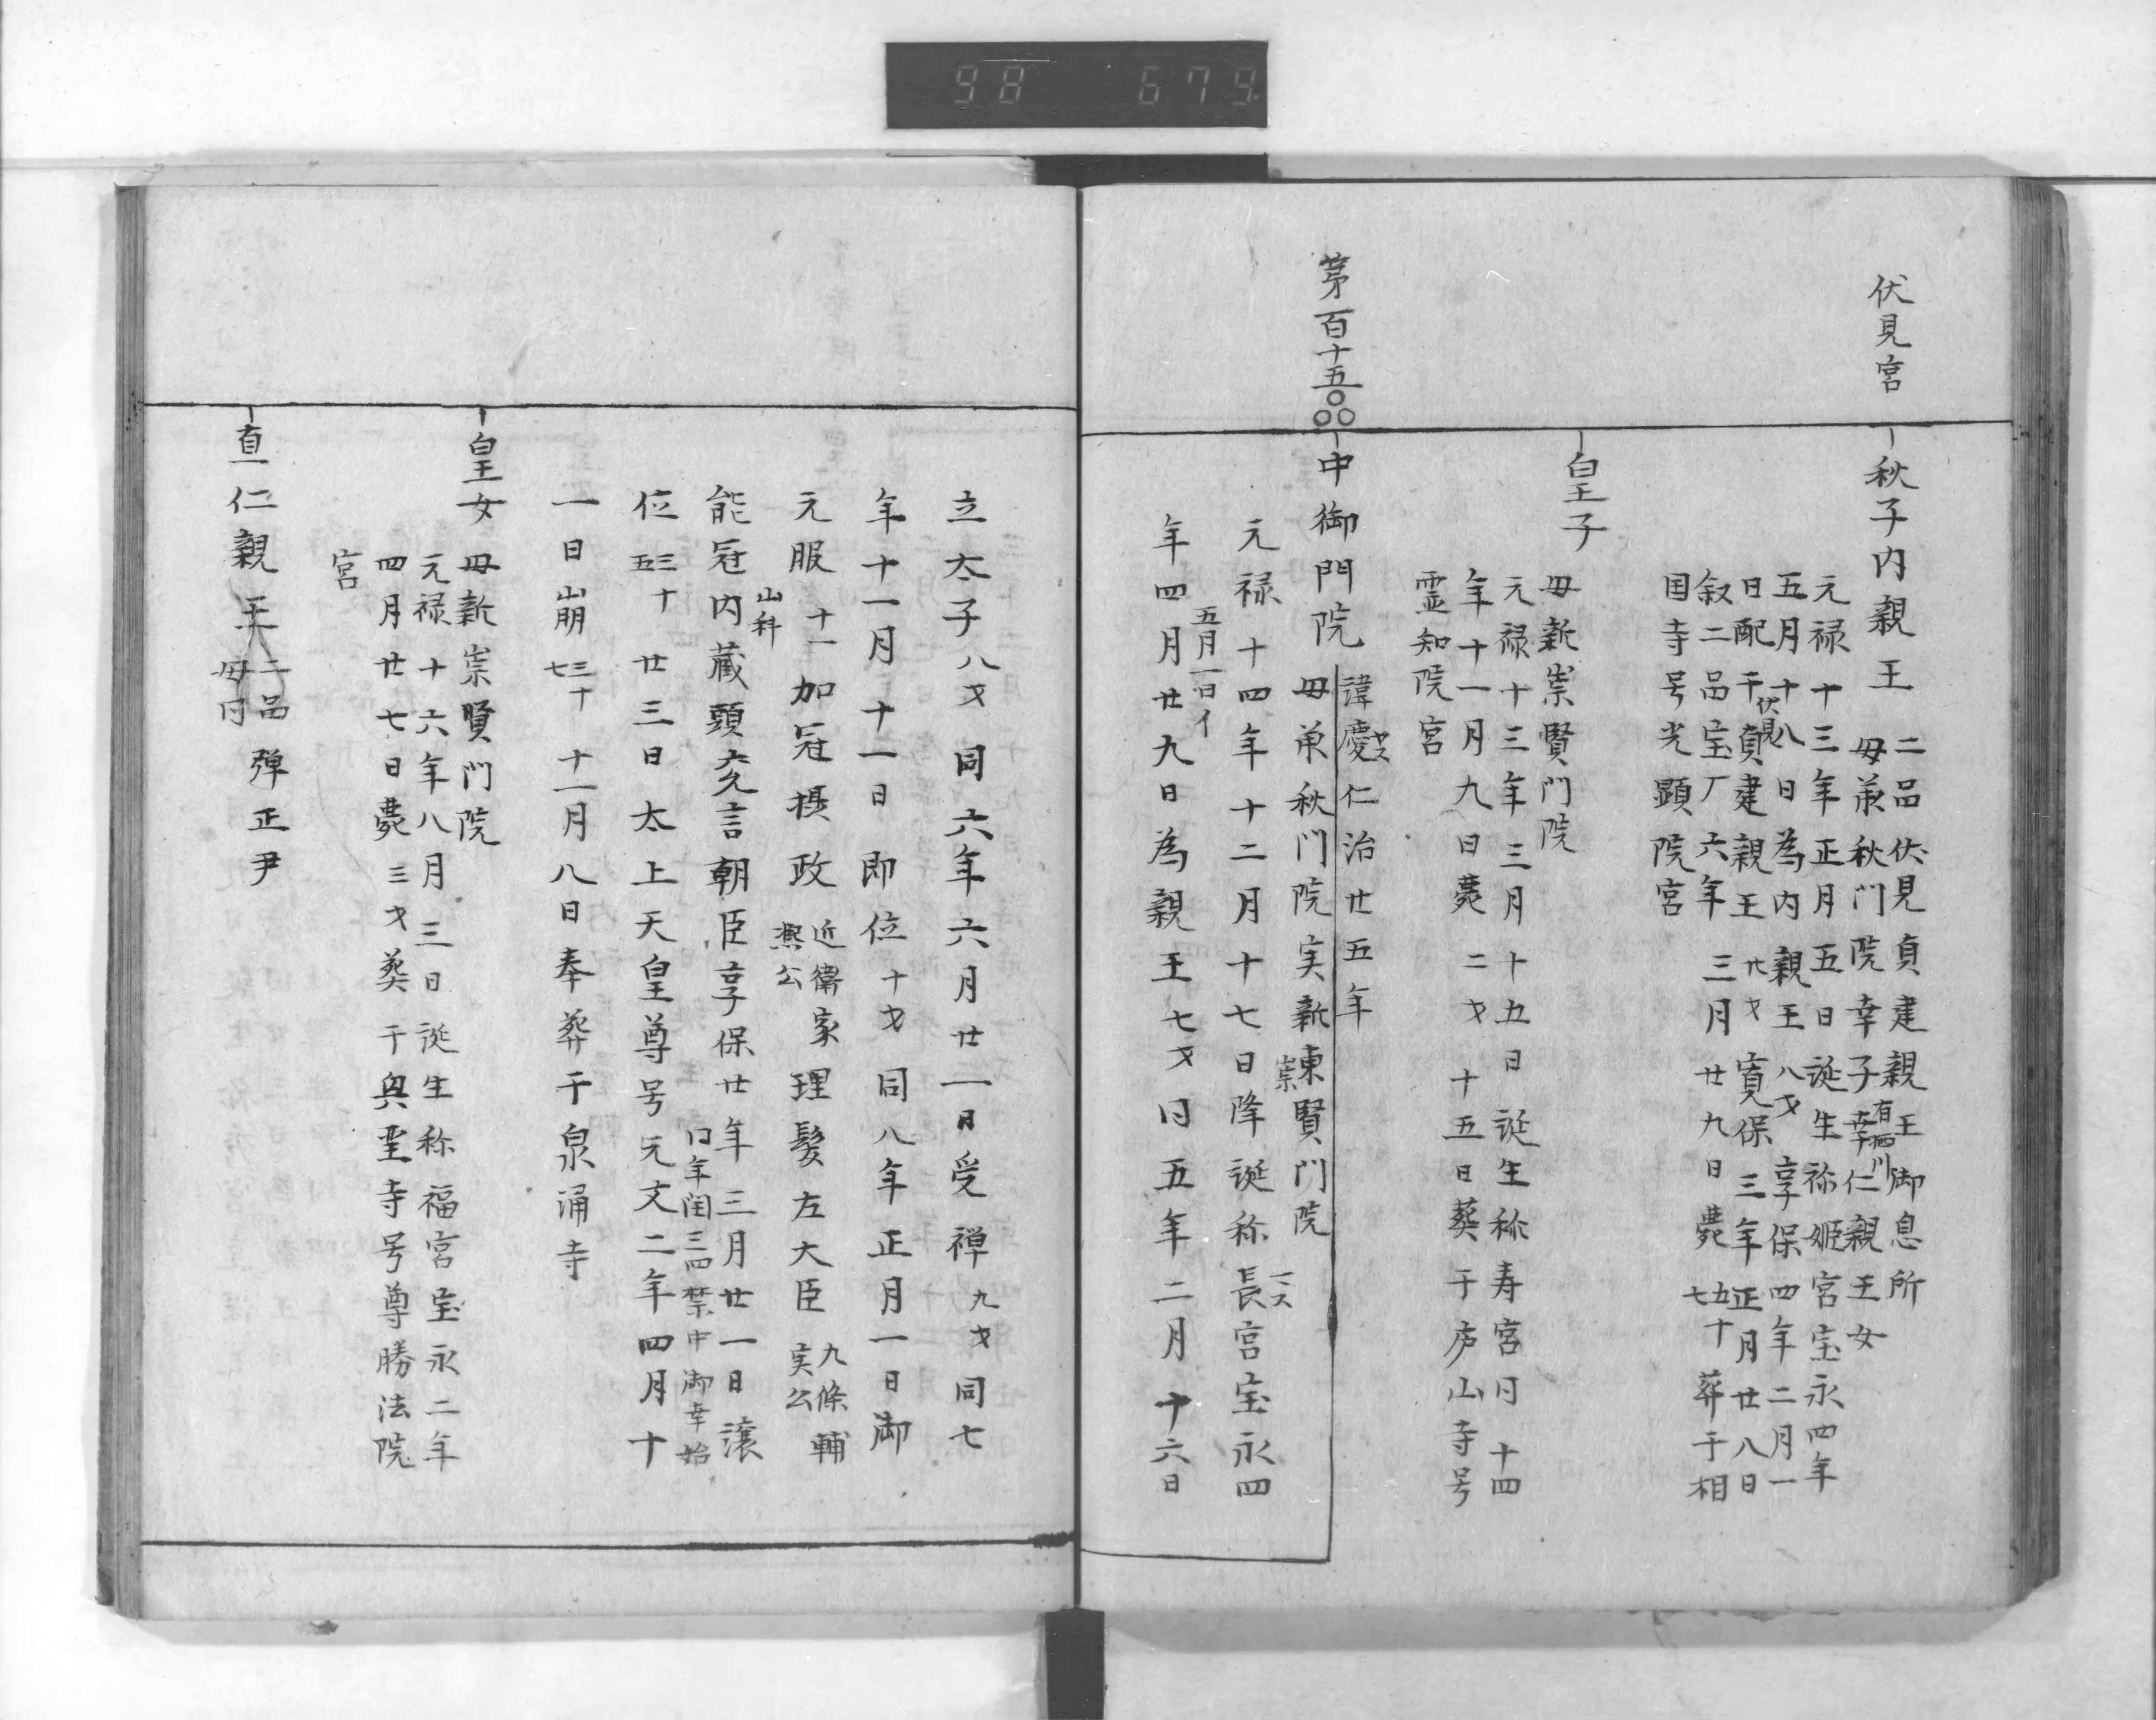 98 679
伏見宮
秋子内親王
二品伏見貞建親王御息所
母承秋门院幸子有栖川幸仁親王女
元禄十三年正月五日誕生称姫宮宝永四年
五月十八日為内親王八才享保四年二月一
日配于伏見貞建親王廿才寛保三年正月廿八日
叙二品宝厂六年三月廿九日薨五十七葬于相
国寺号光顕院宮
皇子
母新崇賢门院
元禄十三年三月十五日誕生称寿宮同十四
年十一月九日薨二才十五日葬于庐山寺号
霊知院宮
第百十五
中御門院
諱慶ヤス仁治廿五年
母承秋门院実新東崇賢门院
元禄十四年十二月十七日降誕称長宮宝永四
五月一日イ
年四月廿九日為親王七才同五年二月十六日
立太子八才同六年六月廿一日受禅九才同七
年十一月十一日即位十才同八年正月一日御
元服十一加冠摂政近衛家熈公理髪左大臣九條輔実公
山科
能冠内蔵頭尭言朝臣享保廿年三月廿一日譲
同年闰三四禁中御幸始
位三十五廿三日太上天皇尊号元文二年四月十
一日崩三十七十一月八日奉葬于泉涌寺
皇女
母新崇賢门院
元禄十六年八月三日誕生称福宮宝永二年
四月廿七日薨三才葬于真里寺号尊勝法院
宮
直仁親王
二品弾正尹
母同